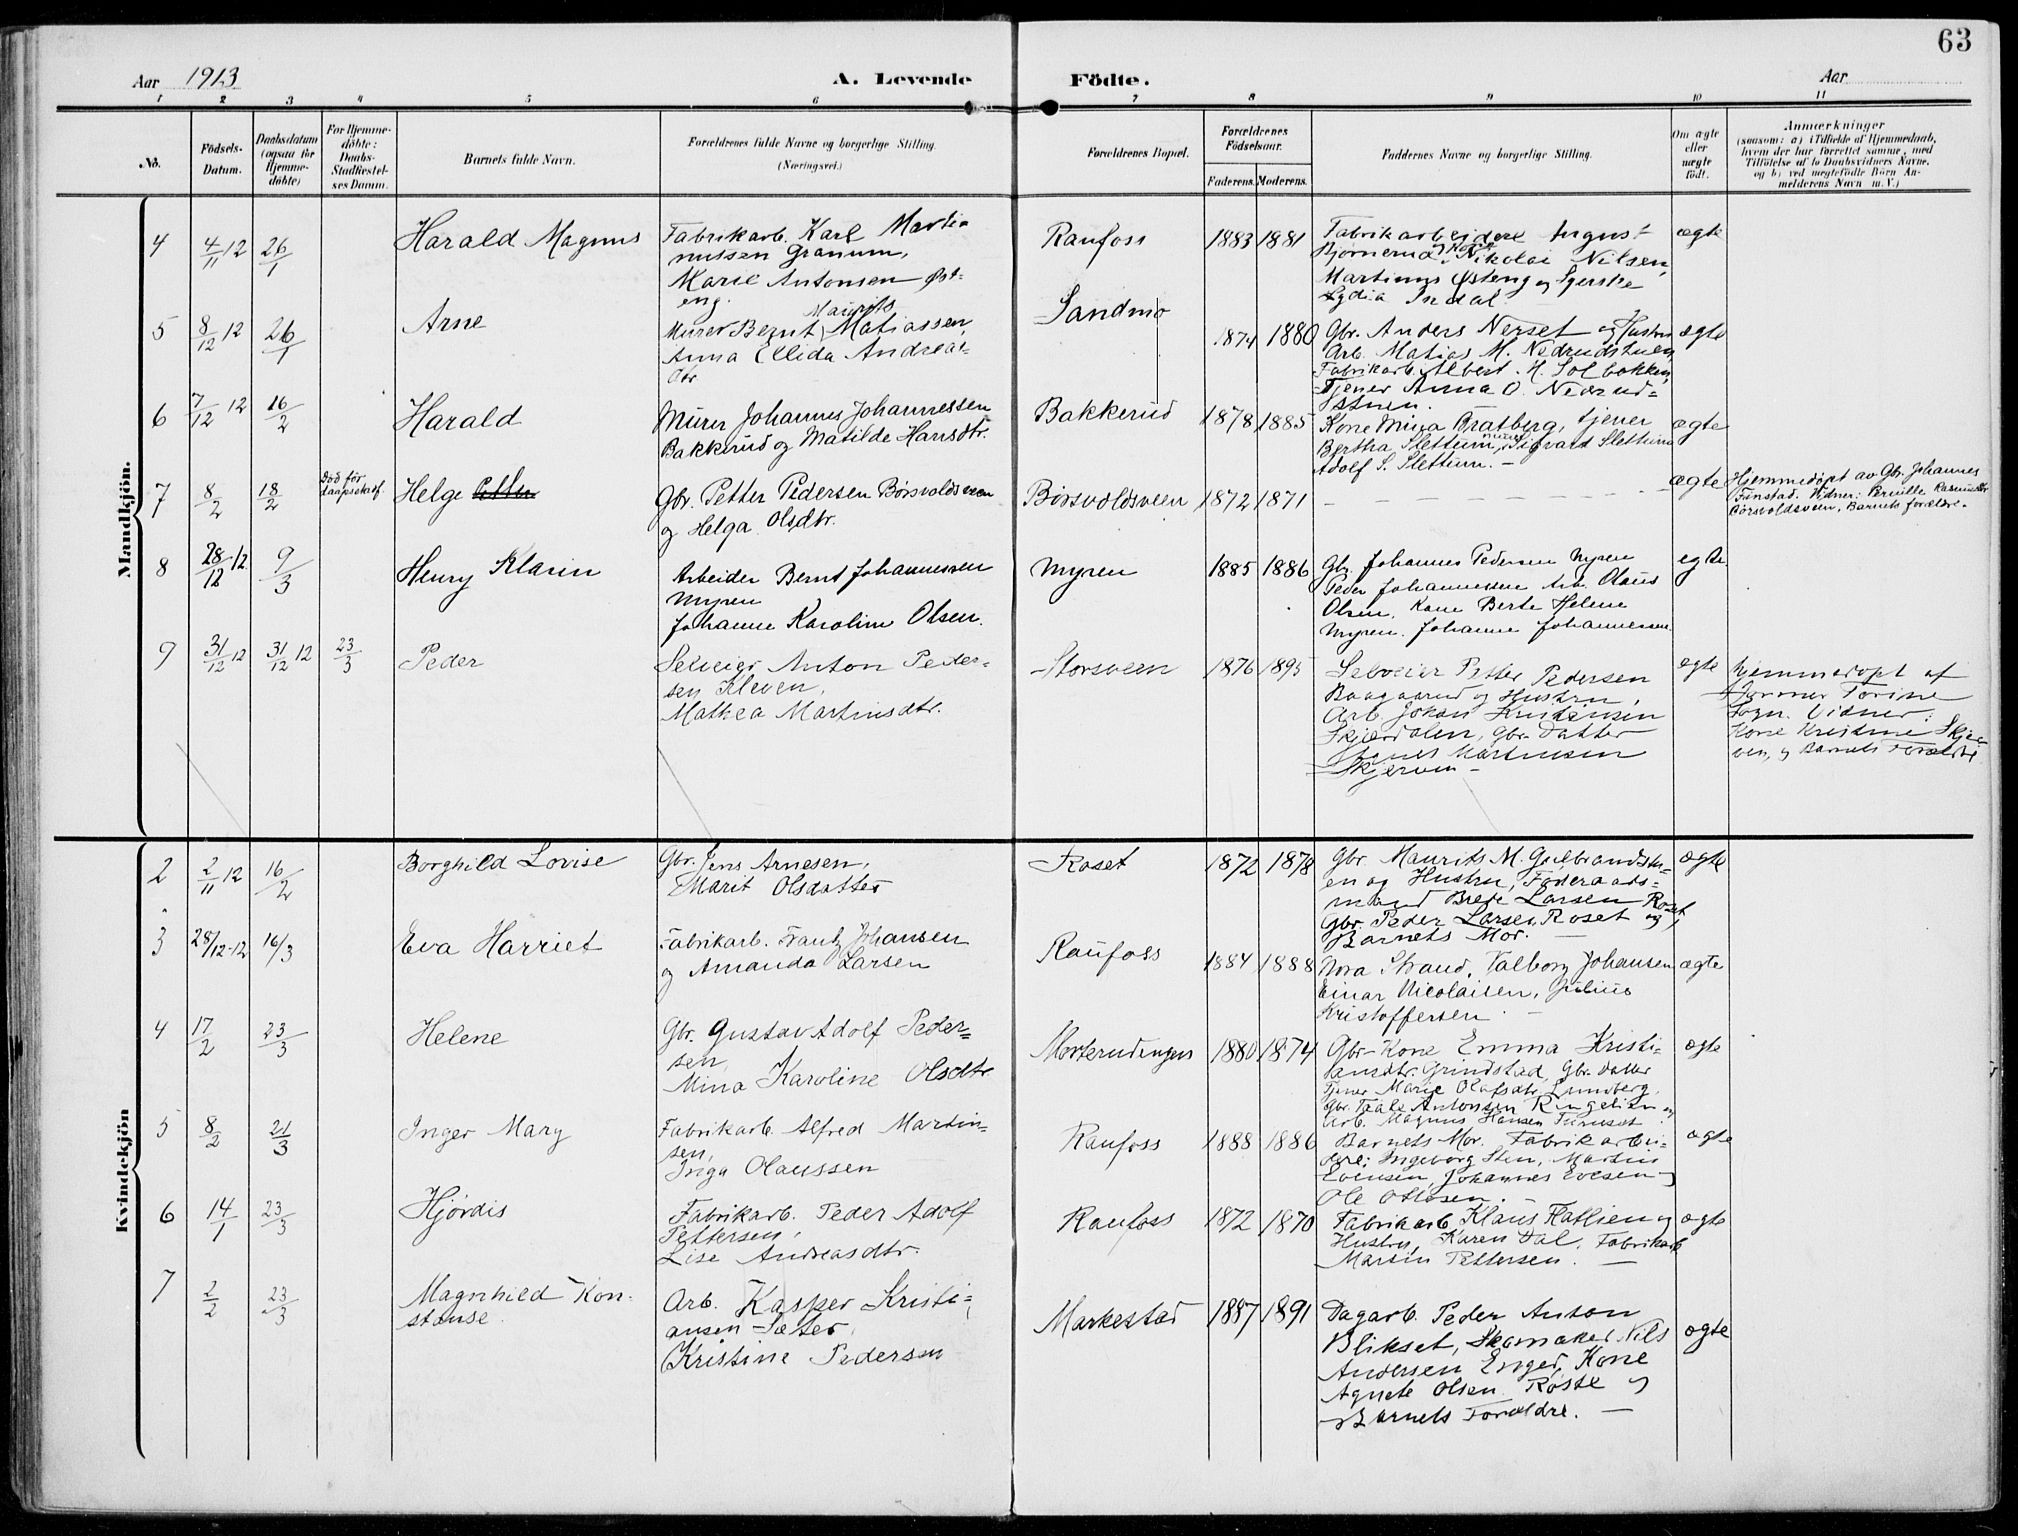 63
Aar 1913
A. Levende
Födte.
Aar
1 2 3 4 5 6 7 8 9 10 11
No.
Födsels-
Datum.
Daabsdatum
(ogsaa for
Hjemme-
döbte)
For Hjemme-
döbte:
Daabs-
Stadfæstel-
ses Datum.
Barnets fulde Navn.
Forældrenes fulde Navne og borgerlige Stilling.
(Næringsvei.)
Forældrenes Bopæl.
Forældrenes
Födselsaar.
Faderens. Moderens.
Faddernes Navne og borgerlige Stilling.
Om ægte
eller
uægte
födt.
Anmærkninger
(saasom: a) i Tilfælde af Hjemmedaab,
hvem der har forrettet samme, med
Tilföielse af to Daabsvidners Navne,
og b) ved uægtefödte Börn An-
melderens Navn m. V.)
Mandkjön.
4
4/11 12
26/1
Harald Magnus
Fabrikarb. Karl Martin
nussen Granum,
Marie Antonsen Øst-
eng.
Raufoss
1883
1881
Fabrikarbeidere August
Bjørnerud, Nikolai Nilsen,
Martinus Østeng og
Lydia Indal.
ægte
5
8/12 12
26/1
Arne
Maurits
Murer Bernt Matiassen,
Anna Ellida Andreas-
dtr
Sandmo
1874
1880
Gbr. Anders Nerset og Hustru
Arb. Matias M. Nedrudstuen,
Fabrikarb. Albert H. Solbakken,
Tjener Anna O. Nedrud-
stuen.
ægte
6
7/12 12
16/2
Harald
Murer Johannes Johannessen
Bakkerud og Matilde Hansdtr.
Bakkerud
1878
1885
Kone Mina Bratberg, tjener
Bertha Slettum, murer Sigvart Slettum
Adolf S. Slettum. –
ægte
7
8/2
18/2
Død før
Helge Petter
Gbr. Petter Pedersen Børsvoldsveen
og Helga Olsdtr.
Børsvoldsveen
1872
1871
– – – – – – –
ægte
Hjemmedøpt av Gbr. Johannes
Tunstad. Vidner: Pernille Rasmusdtr
Børsvoldsveen, Barnets forældre.
8
28/12 12
9/3
Henry Klarin
Arbeider Bernt Johannessen
Myren
Johanne Karoline Olsen.
Myren
1885
1886
Gbr. Johannes Pedersen Myren
Peder Johannessen Arb. Olaus
Olsen, Kone Berte Helene
Myren. Johanne Johannessen.
egte
9
31/12 12
31/12 12
23/3
Peder
Selveier Anton Peder-
sen Kleven,
Mathea Martinsdtr.
Storsveen
1876
1895
Selveier Petter Pedersen
Baagaarud og Hustru,
Arb. Johan Kristensen
Skjærdalen, Gbr. Datter
Agnes Martinsen
Skjerven –
ægte
Hjemmedøpt af
Jormor Torine
Sogn. Vidner:
Kone Kristine Skjær-
ven, og Barnets Forældre
Kvindekjön
2
2/11 12
16/2
Borghild Lovise
Gbr. Jens Arnesen,
Marit Olsdatter
Roset
1872
1878
Gbr. Maurits M. Gulbrandsstu-
en og Hustru, Føderaads-
mand Brede Larsen Roset,
Gbr. Peder Larsen Roset og
Barnets Mor. –
ægte
3
28/12-12
16/3
Eva Harriet
Fabrikarb. Frantz Johansen
og Amanda Larsen
Raufoss
1884
1888
Nora Strand, Valborg Johansen
Einar Nicolaisen, Julius
Kristoffersen. –
ægte
4
17/2
23/3
Helene
Gbr. Gustav Adolf Peder-
sen,
Mina Karoline Olsdtr.
Morterudengen
1880
1874
Gbr-Kone Emma Kristi-
ansdtr. Grindstad, Gbr. datter
Tjener Marie Olafsdtr. Lundberg,
Gbr. Teale Antonsen Ringelien og
Arb. Magnus Hansen Furuset.
ægte
5
8/2
21/3
Inger Mary
Fabrikarb. Alfred Martin-
sen,
Inga Olaussen
Raufoss
1888
1886
Barnets Mor. Fabrikarbei-
dere: Ingeborg Sten, Martin
Evensen, Johannes Evesen og
Ole Ottesen. –
ægte
6
14/1
23/3
Hjørdis
Fabrikarb. Peder Adolf
Pettersen,
Lise Andreasdtr.
Raufoss
1872
1870
Fabrikarb. Klaus Hatlien og
Hustru, Karen Dal, Fabrikarb
Martin Pettersen. –
ægte
7
2/2
23/3
Magnhild Kon-
stanse.
Arb. Kasper Kristi-
ansen Sæter,
Kristine Pedersen
Markestad
1887
1891
Dagarb. Peder Anton
Blikset, Skomaker Nils
Andersen Enger, Kone
Agnete Olsen Røste og
Barnets Forældre. –
ægte